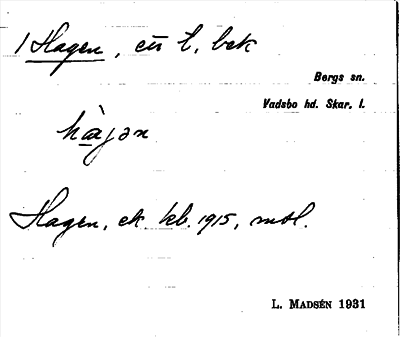 1 Hagen, en l. bek
Bergs sn.
Vadsbo hd. Skar. l.
hàgən
Hagen, ek kb. 1915, mtl.
L. MADSÉN 1931